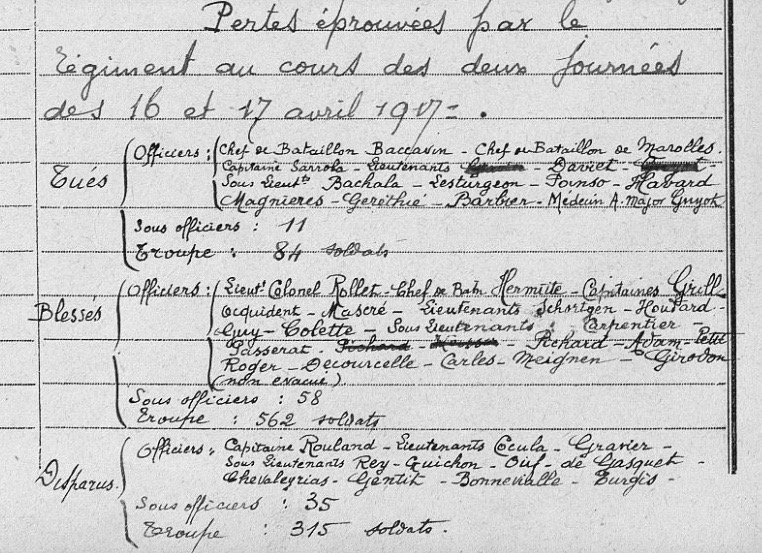 Pertes éprouvées par le
régiment au cours des deux journées
des 16 et 17 avril 1917 = .
Tués
Officiers : Chef de Bataillon Baccavin - Chef de Bataillon de Marolles.
Capitaine Sarrola - Lieutenants - Daviet -
Sous Lieutts Bachala - Lesturgeon - Poinso - Havard
Magnieres - Geréthié - Barbier - Médecin A. Major Guyot
Sous officiers : 11
Troupe : 84 soldats
Blessés
Officiers : Lieutt Colonel Rollet - Chef de Batn Hermitte - Capitaines Grill
Ocquident - Mascré - Lieutenants Schortgen - Houtard -
Guy - Colette - Sous Lieutenants : Carpentier -
Passerat - Pichard - - Pichard - Adam - Petit
Roger - Decourcelle - Carles - Meignen - Girodon
(non évacué)
Sous officiers : 58
Troupe : 562 soldats
Disparus.
Officiers : Capitaine Rouland - Lieutenants Cocula - Gravier -
Sous Lieutenants Rey - Guichon - Ouf - de Gasquet -
Chevaleyrias - Gentit - Bonnevialle - Turgis -
Sous officiers : 35
Troupe : 315 soldats.